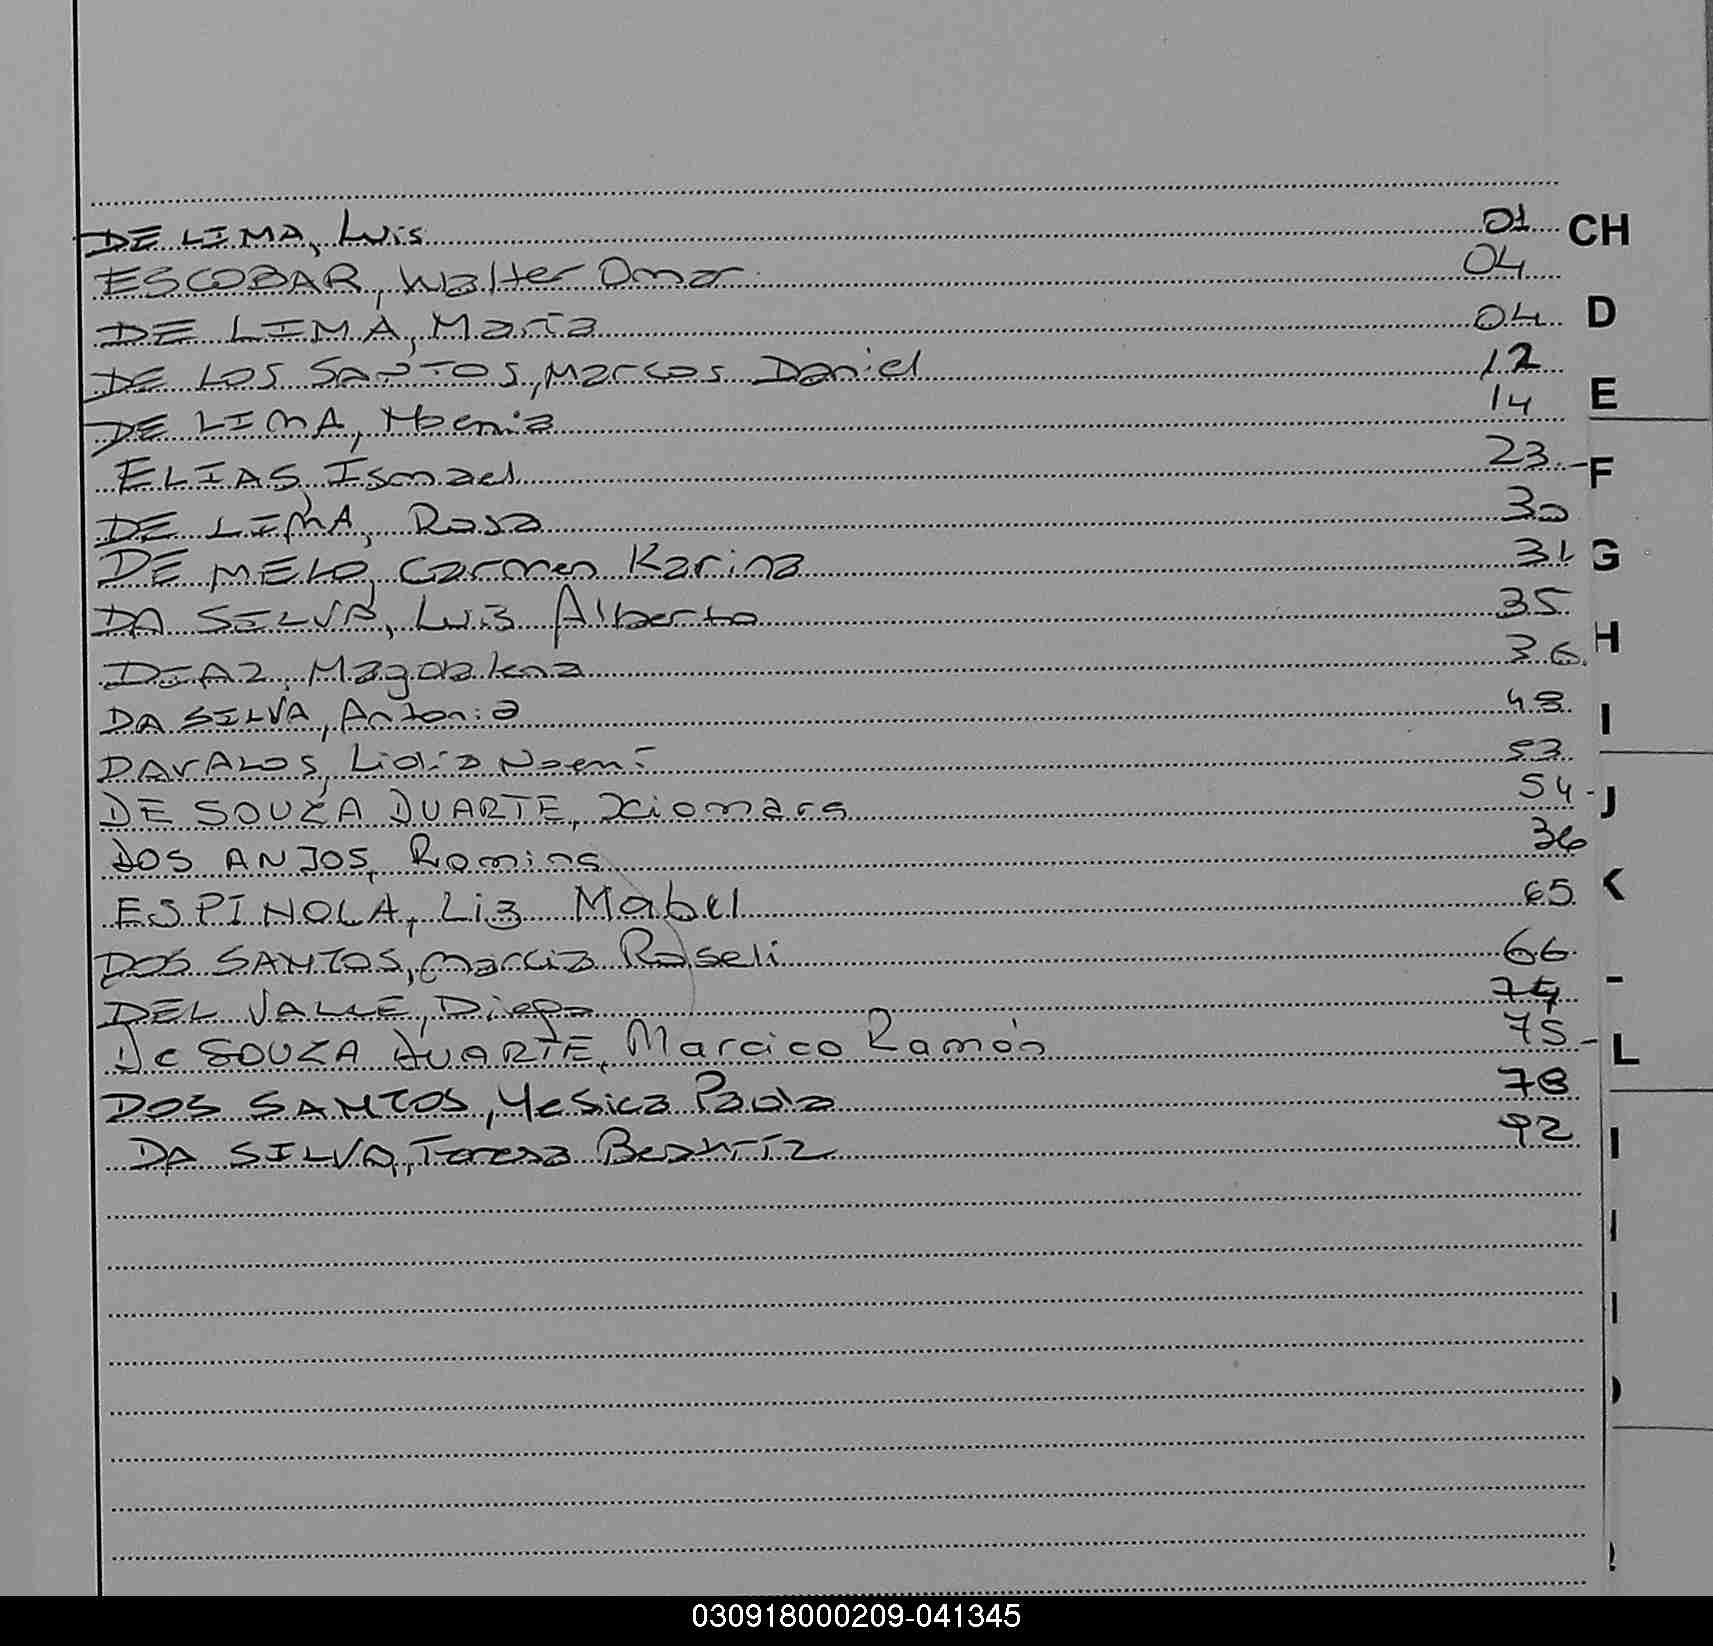 DE LIMA, Luis 01
ESCOBAR, Walter Omar 04
DE LIMA, María 04
DE LOS SANTOS, Marcos Daniel 12
DE LIMA, 14
ELIAS, Ismael 23.-
DE LIMA, Rosa 30
DE MELO, Carmen Karina 31
DA SILVA, Luiz Alberto 35
DIAZ, Magdalena 36.
DA SILVA, Antonia 48
DAVALOS, Lidia Noemí 53
DE SOUZA DUARTE, Xiomara 54.-
DOS ANJOS, Romina 36
ESPÍNOLA, Liz Mabel 65
DOS SANTOS, Marcia Roseli 66
DEL VALLE, Diego 74
De SOUZA DUARTE, Marcico Ramón 75.-
DOS SANTOS, Yesica Paola 78
DA SILVA, Teresa Beatriz 92
CH
D
E
F
G
H
I
J
K
L
030918000209-041345